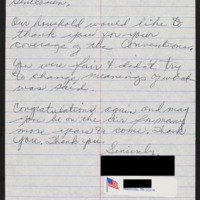 Gentlemen,
Our household would like to
thank you for your
coverage of the Conventions.
You were fair & didn't try
to change meanings of what
was said.
Congratulations again and may
you be on the air for many
more years to come. Thank
You. Thank you.
Sincerely,